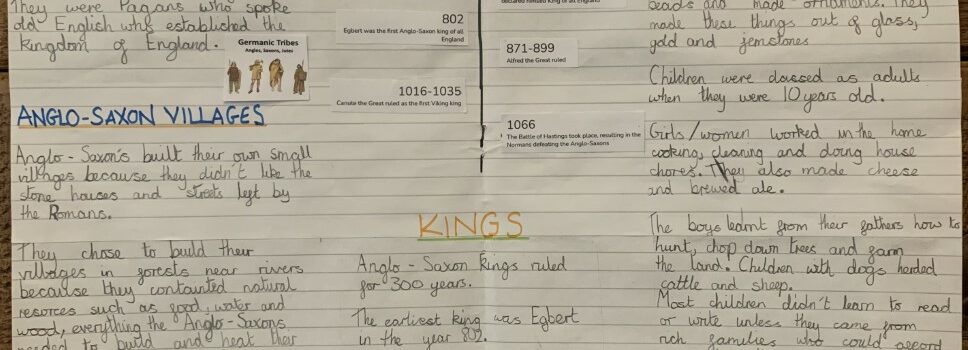 They were Pagans who spoke
old English who established the
kingdom of England.
Germanic Tribes
Angles, Saxons, Jutes
ANGLO-SAXON VILLAGES
Anglo-Saxon's built their own small
villages because they didn't like the
stone houses and streets left by
the Romans.
They chose to build their
villages in forests near rivers
because they contaunted natural
resorces such as food, water and
wood, everything the Anglo-Saxons
needed to build and heat their
802
Egbert was the first Anglo-Saxon king of all
England
1016-1035
Canute the Great ruled as the first Viking king
declared himself King of all England
871-899
Alfred the Great ruled
1066
The Battle of Hastings took place, resulting in the
Normans defeating the Anglo-Saxons
KINGS
Anglo-Saxon kings ruled
for 300 years.
The earliest king was Egbert
in the year 802.
beads and made ornaments. They
made these things out of glass,
gold and jemstones
Children were classed as adults
when they were 10 years old.
Girls/women worked in the home
cooking, cleaning and doing house
chores. They also made cheese
and brewed ale.
The boys learnt from their fathers how to
hunt, chop down trees and farm
the land. Children with dogs herded
cattle and sheep.
Most children didn't learn to read
or write unless they came from
rich families who could afford